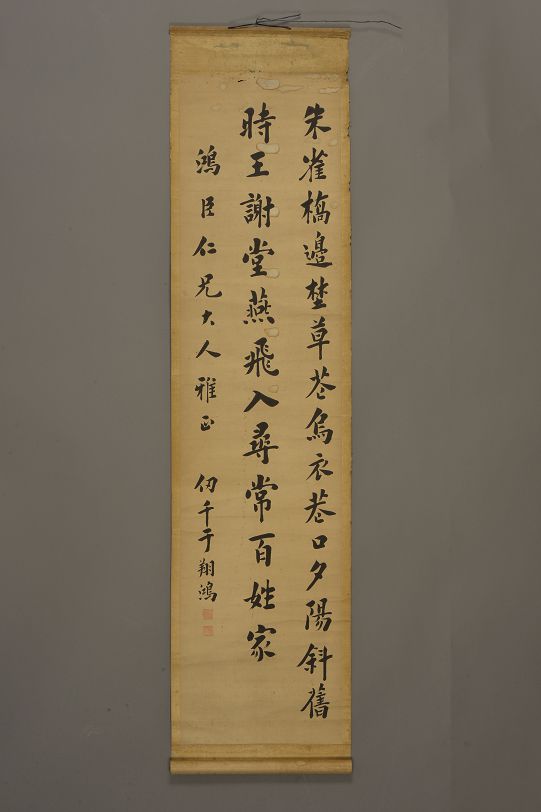 朱雀橋邊埜草花烏衣巷口夕陽斜舊
時王謝堂燕飛入尋常百姓家
鴻臣仁兄大人雅正
仞千于翔鴻